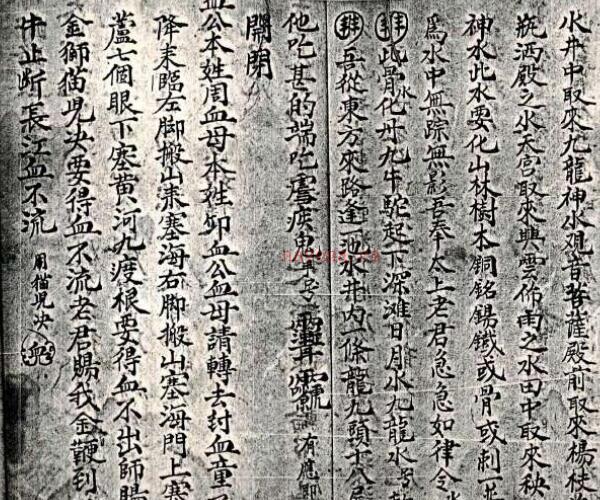 水井中取來九龍神水观音菩薩殿前取來楊枝
瓶洒殿之水天宫取來興雲佈雨之水田中取來秧
神水此水要化山林樹木銅鉛錫鐵或骨或刺一並
爲水中無踪無影吾奉太上老君急急如律令
此骨化丹九牛駝起下深滩日月水九龍水
吾從東方來路逢一池水井内一條龍九頭十八尾
他吃甚的端吃瘧疾 有應即
開閉
血公本姓周血母本姓卯血公血母請轉去封血童子
降來臨左脚搬山來塞海右脚搬山塞海門上塞
蘆七個眼下塞黄河九渡根要得血不出師賜
金獅猫児决要得血不流老君賜我金鞭到
牛止断長江血不流 用猫児决